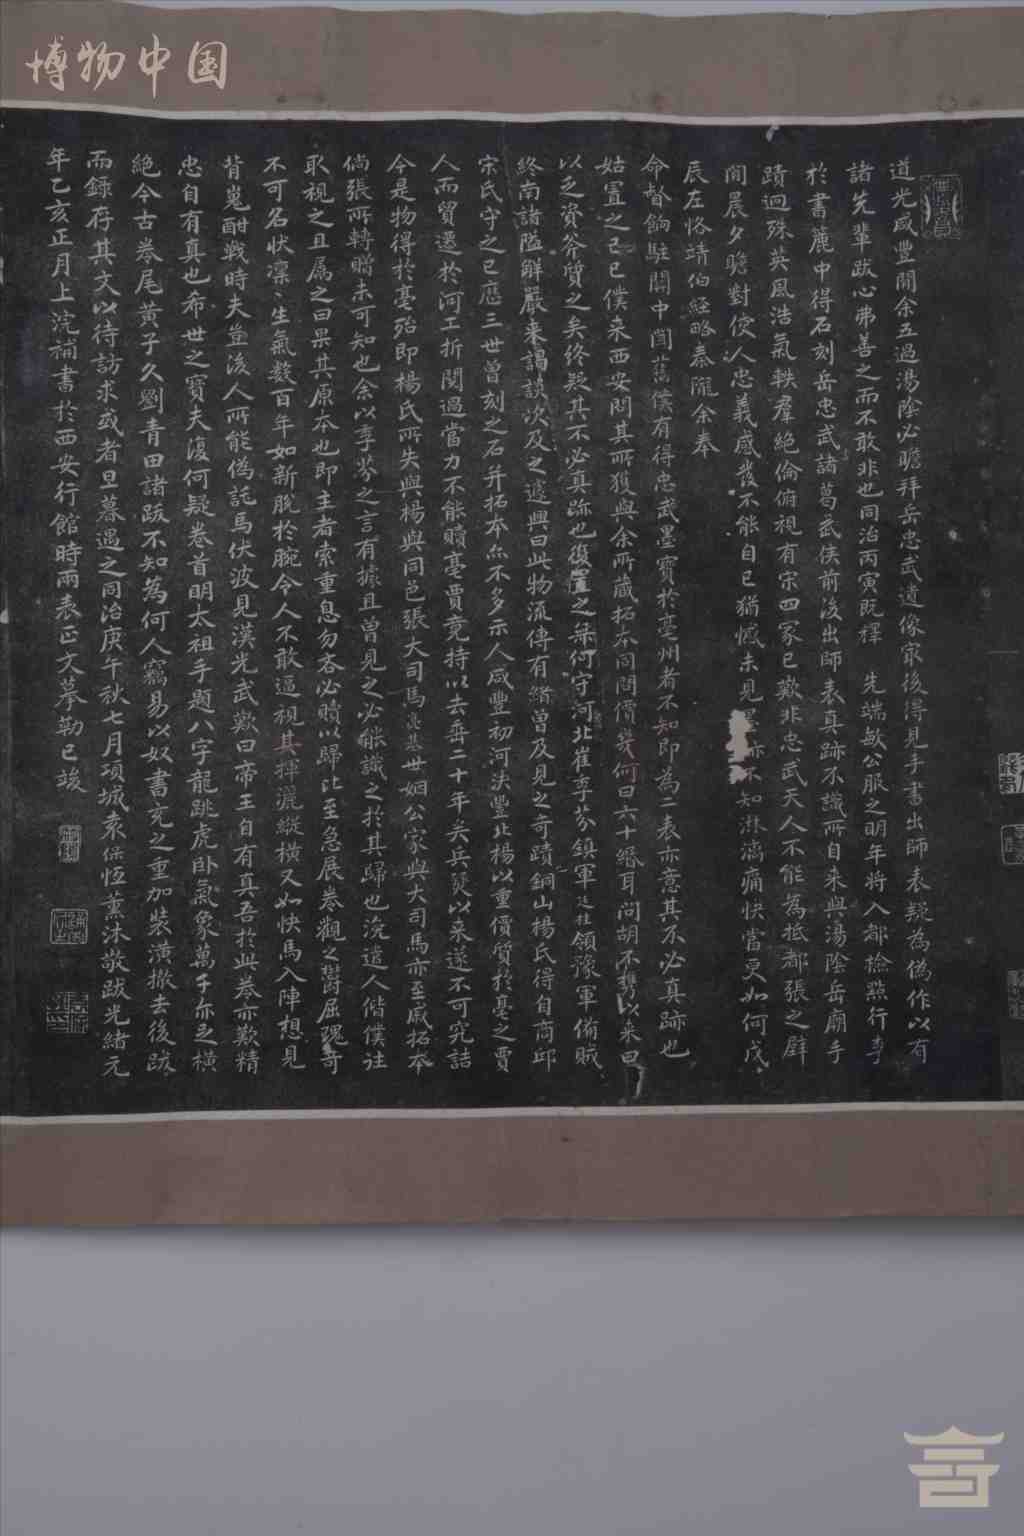 博物中国
道光咸豐間余五過湯陰必瞻拜岳忠武遺像家後得見手書出師表疑為偽作以有
諸先輩跋心弗善之而不敢非也同治丙寅既禫 先端敏公服之明年將入都檢點行李
於書簏中得石刻岳忠武諸葛武侯前後出師表真跡不識所自来與湯陰岳廟手
蹟迥殊英風浩氣軼羣絕倫俯視有宋四家已歎非忠武天人不能為抵都張之壁
間晨夕瞻對使人忠義感發不能自已猶憾未見 不知淋漓痛快當更如何戊
辰左恪靖伯經略秦隴余奉
命督餉駐關中聞舊僕有得忠武墨寶於亳州者不知即為二表亦意其不必真跡也
姑置之己巳僕来西安問其所獲與余所藏拓本同問價幾何曰六十緡耳問胡不攜以来曰
以乏資斧質之矣終疑其不必真跡也復置之無何守河北崔季芬鎮軍廷桂領豫軍備賊
終南諸隘解嚴来謁談次及之遽興曰此物流傳有緒曾及見之奇蹟銅山楊氏得自商邱
宋氏守之已歷三世曾刻之石并拓本亦不多示人咸豐初河決豐北楊以重價質於亳之賈
人而貿遷於河工折閱過當力不能贖亳賈竟持以去弆二十年矣兵燹以来遂不可究詰
今是物得於亳殆即楊氏所失與楊與同邑張大司馬 世姻公家與大司馬亦至戚拓本
倘張所轉贈未可知也余以季芬之言有據且曾見之必能識之於其歸也浼遣人偕僕往
取視之且屬之曰果其原本也即主者索重息勿吝必贖以歸比至急展卷觀之鬱屈瑰奇
不可名狀凛凛生氣數百年如新脫於腕令人不敢逼視其揮灑縱橫又如快馬入陣想見
背嵬酣戰時夫豈後人所能偽託馬伏波見漢光武歎曰帝王自有真吾於此卷亦歎精
忠自有真也希世之寶夫復何疑卷首明太祖手題八字龍跳虎臥氣象萬千亦足橫
絕今古卷尾黃子久劉青田諸跋不知為何人竊易以奴書充之重加裝潢撤去後跋
而錄存其文以待訪求或者旦暮遇之同治庚午秋七月項城袁保恆薰沐敬跋光緒元
年乙亥正月上浣補書於西安行館時兩表正文摹勒已竣